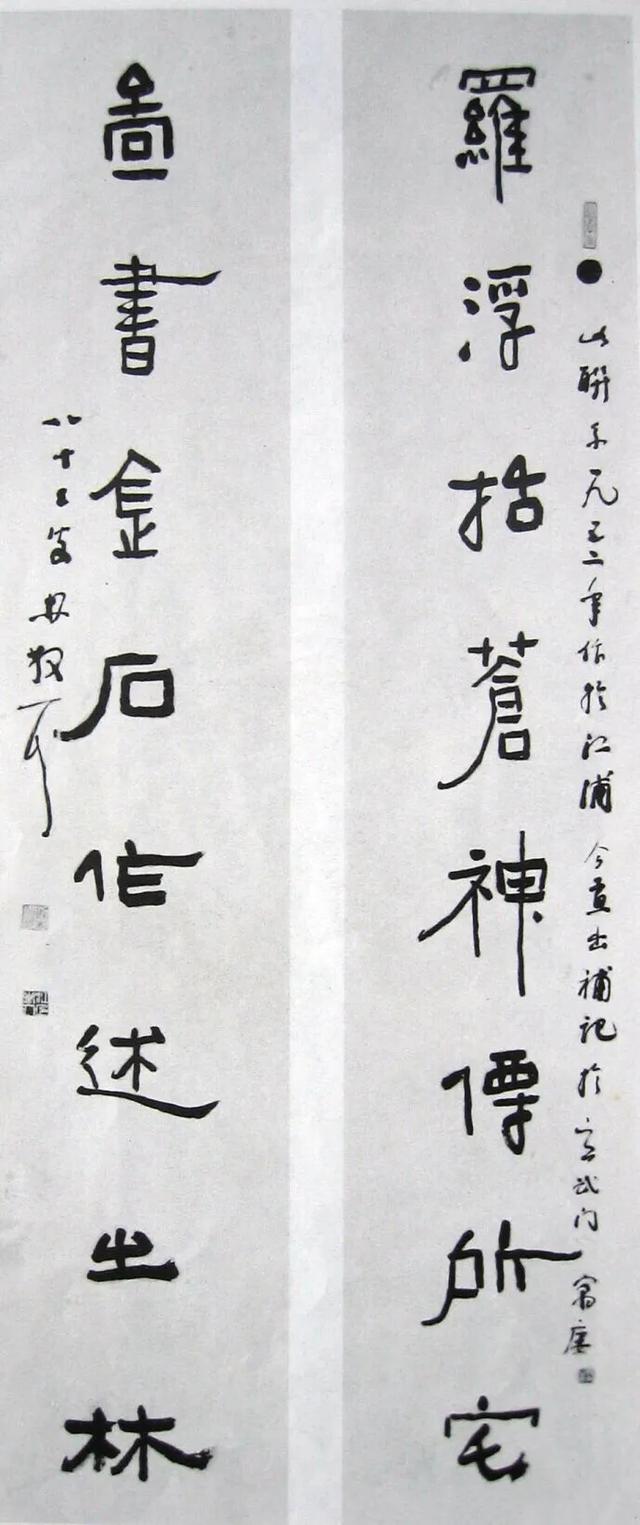 此聯 一九五二年作於江浦 今查出補記於玄武門 寓廬
羅浮括蒼神僊所宅
圖書金石作述之林
八十 叟 林散耳